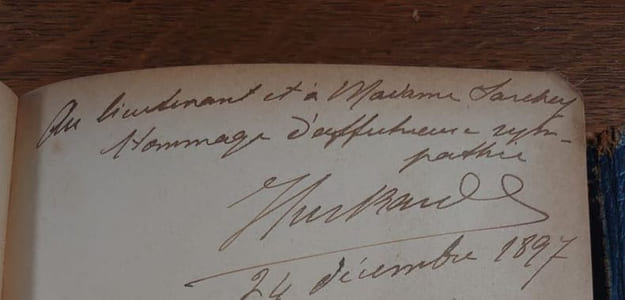 Au lieutenant et à Madame
Hommage d'affectueuse sym-
pathie
24 décembre 1897